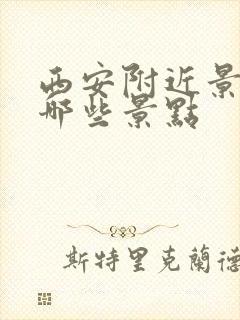 西安附近景
哪些景點
斯特里克蘭德